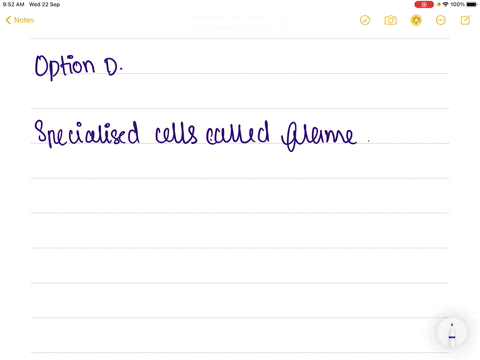 9:52 AM Wed 22 Sep
100%
Notes
Option D.
Specialised cells called flame